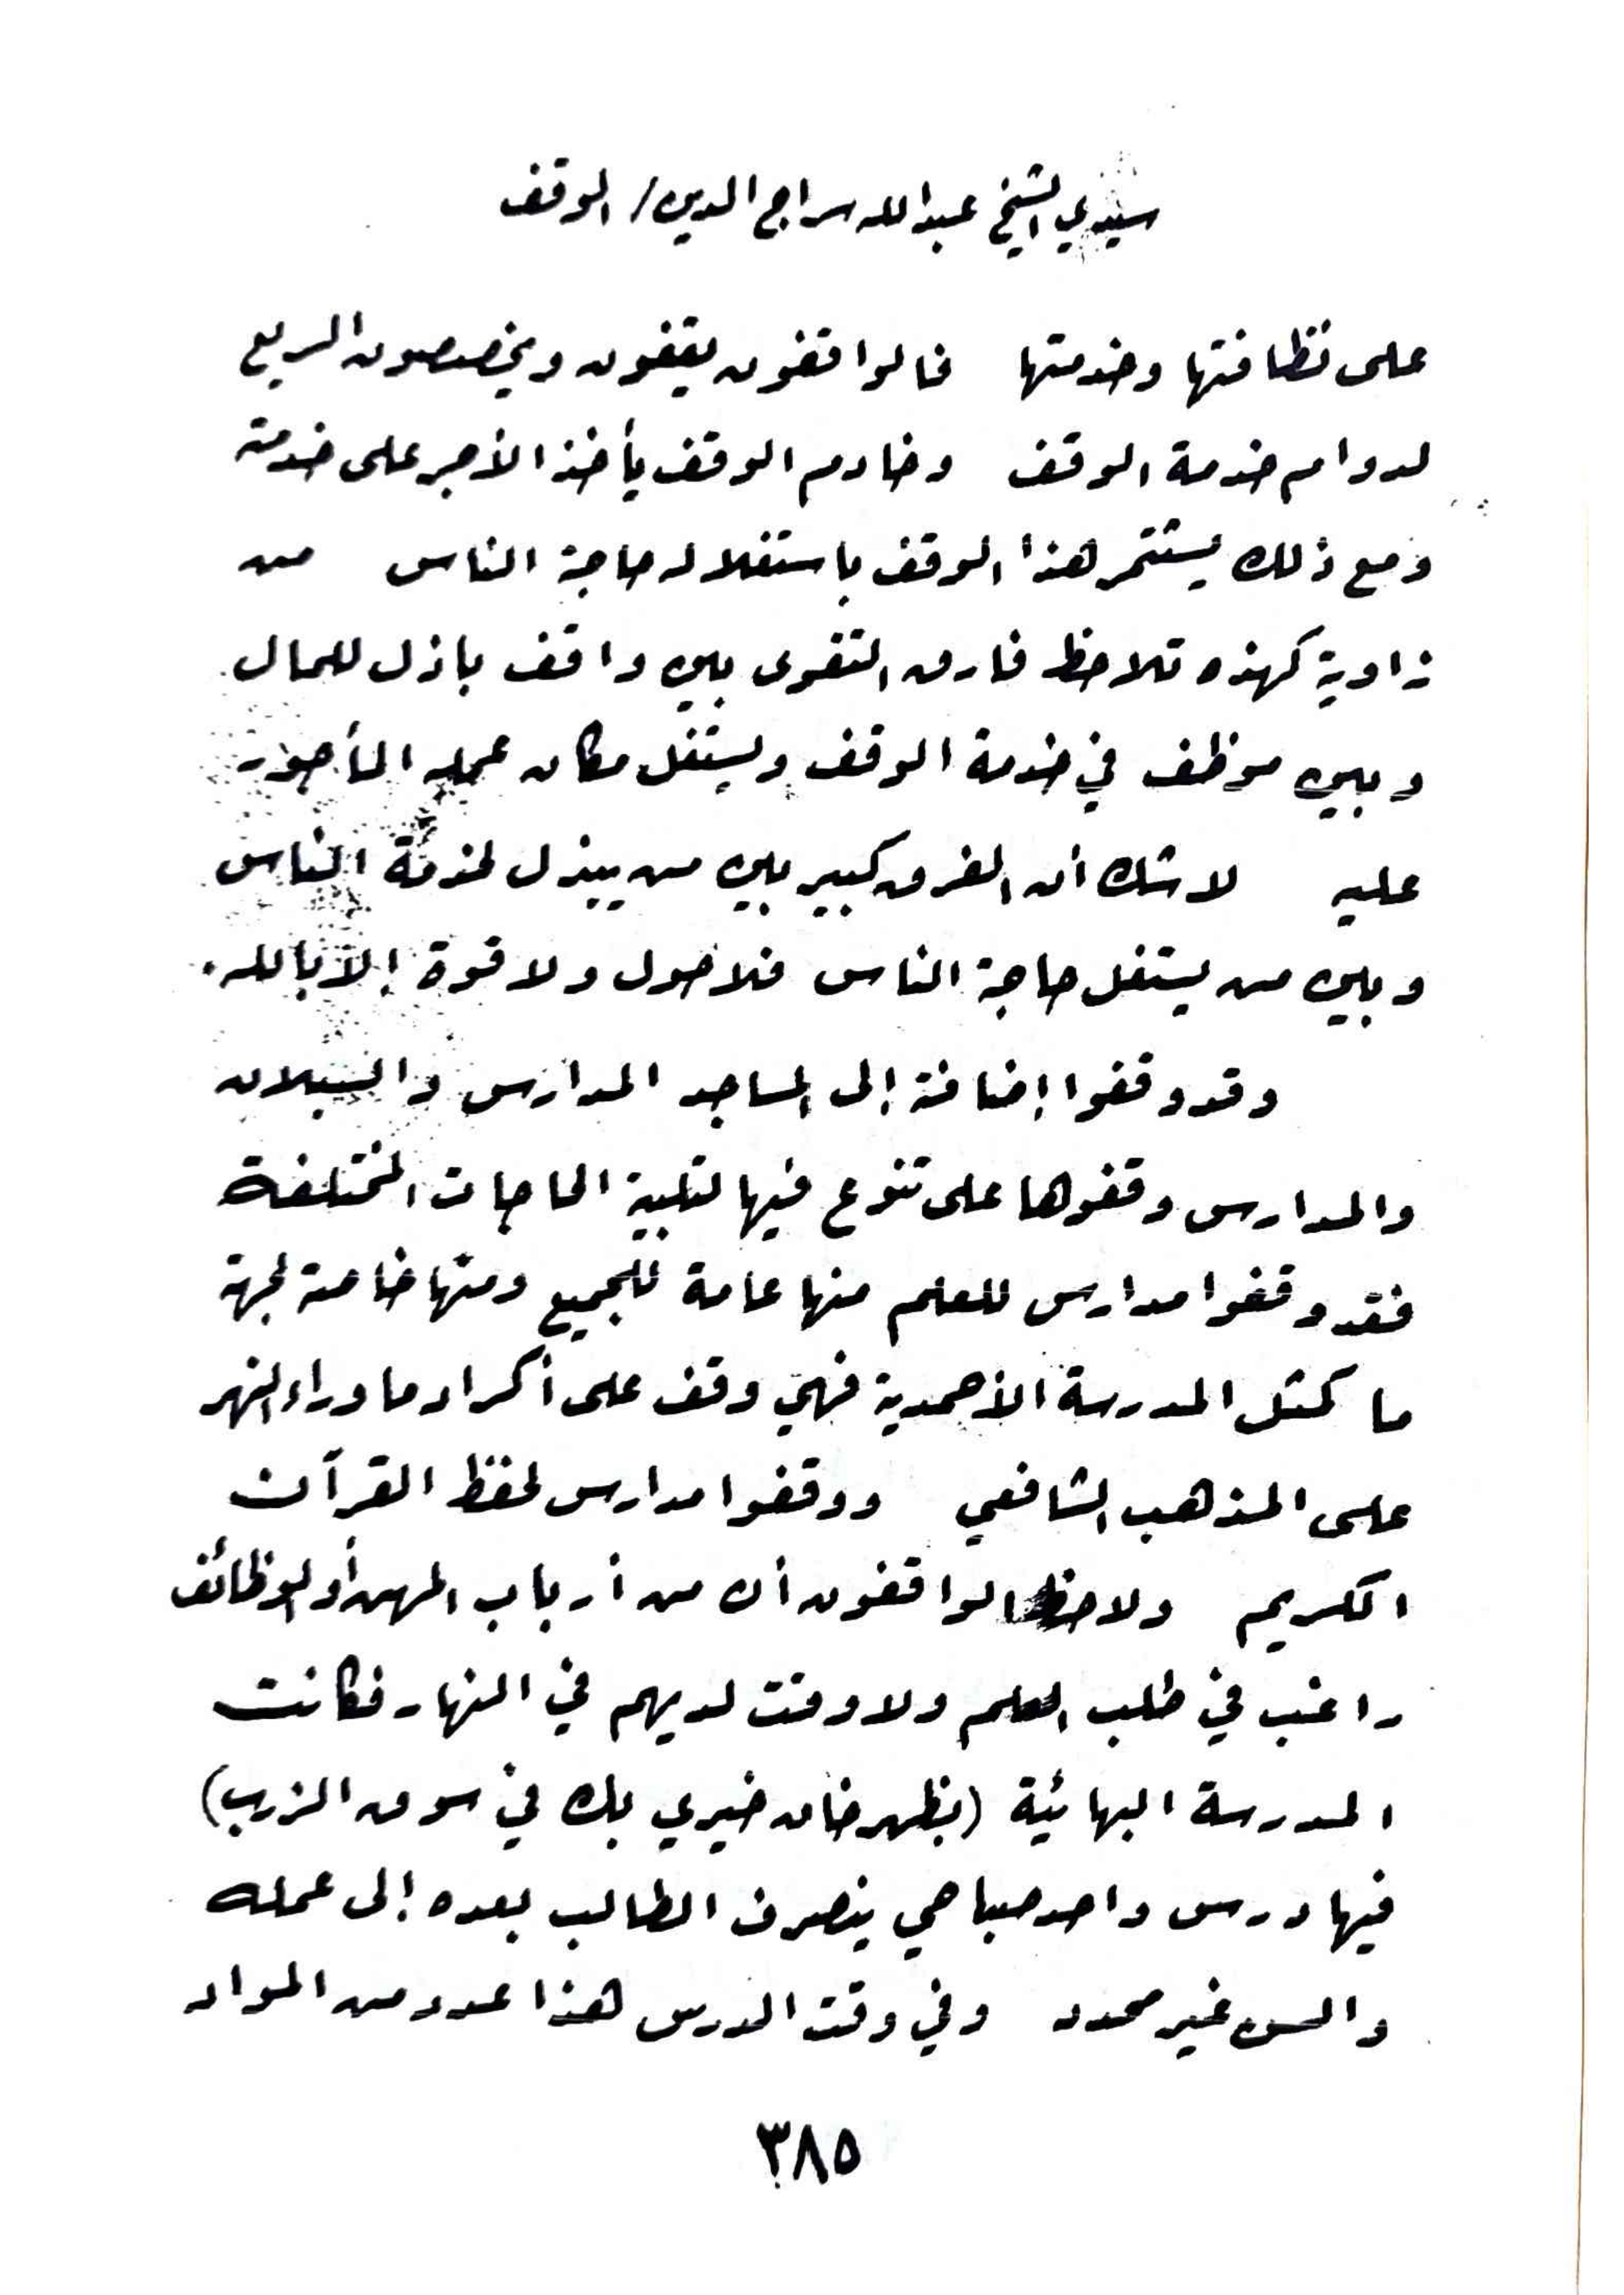 سيدي الشيخ عبدالله سراج الدين / الوقف
على نظافتها وخدمتها فالواقفون يقفون ويخصصون الريع
لدوام خدمة الوقف وخادم الوقف يأخذ الأجر على خدمته
ومع ذلك يستثمر هذا الوقف باستغلاله حاجة الناس من
زاوية كهذه تلاحظ فارق التقوى بين واقف باذل للمال
وبين موظف في خدمة الوقف ويستغل مكان عمله المأجور
عليه لا شك أن الفرق كبير بين من يبذل لخدمة الناس
وبين من يستغل حاجة الناس فلا حول ولا قوة إلا بالله.
وقد وقفوا إضافة إلى المساجد المدارس والسبلان
والمدارس وقفوها على تنوع فيها لتلبية الحاجات المختلفة
فقد وقفوا مدارس للعلم منها عامة للجميع ومنها خاصة لجهة
ما كمثل المدرسة الأحمدية فهي وقف على أكراد ما وراء النهر
على المذهب الشافعي ووقفوا مدارس لحفظ القرآن
الكريم ولاحظ الواقفون أن من أرباب المهن أو الوظائف
راغب في طلب العلم ولا وقت لديهم في النهار فكانت
المدرسة البهائية (بظهر خان خيري بك في سوق الزرب)
فيها درس واحد صباحي ينصرف الطالب بعده إلى عمله
والسن غير محدد وفي وقت الدرس هذا عدد من المواد
٣٨٥